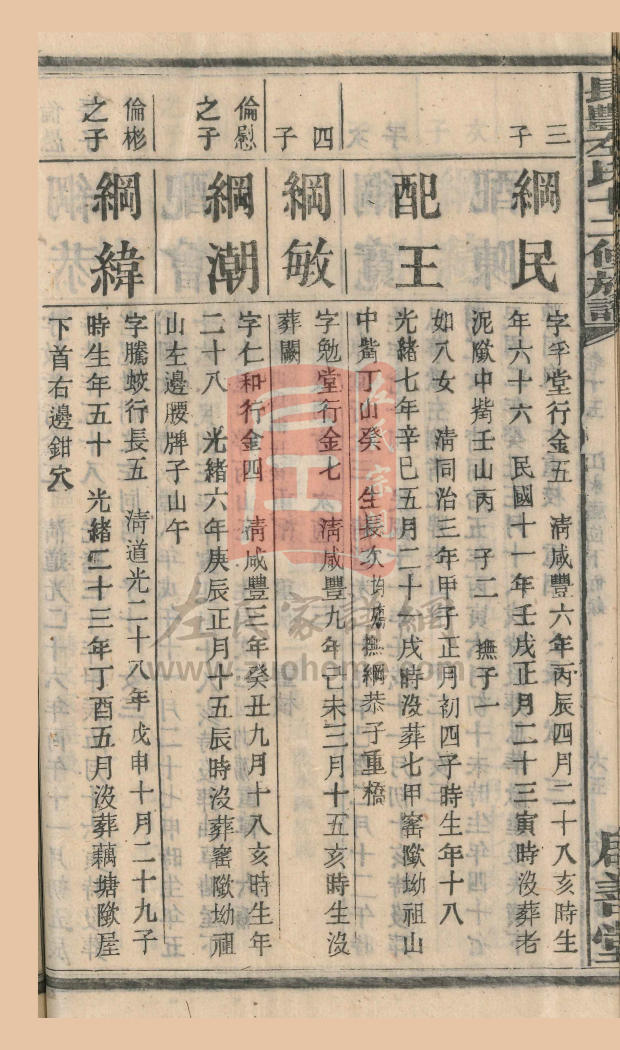 長豐左氏十二修族譜
三子
綱民
字平堂行金五 淸咸豐六年丙辰四月二十八亥時生
年六十六 民國十一年壬戌正月二十三寅時沒葬老
泥㘰中觜壬山丙 子二 撫子一
配王
如八女 淸同治三年甲子正月初四子時生年十八
光緒七年辛巳五月二十六戌時沒葬七甲窰㘰坳祖山
中觜丁山癸 生長次均殤撫綱恭子重橋
四子
綱敏
字勉堂行金七 淸咸豐九年己未三月十五亥時生沒
葬闕
倫慰之子
綱潮
字仁和行金四 淸咸豐三年癸丑九月十八亥時生年
二十八 光緒六年庚辰正月十五辰時沒葬窰㘰坳祖
山左邊腰牌子山午
倫彬之子
綱緯
字騰蛟行長五 淸道光二十八年戊申十月二十九子
時生年五十 光緒二十三年丁酉五月沒葬藕塘㘰屋
下首右邊鉗穴
左氏家譜網
www.zuohome.com